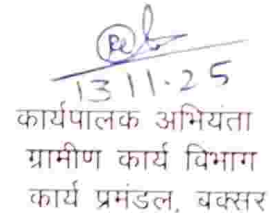 13 11.25
कार्यपालक अभियंता
ग्रामीण कार्य विभाग
कार्य प्रमंडल, बक्सर